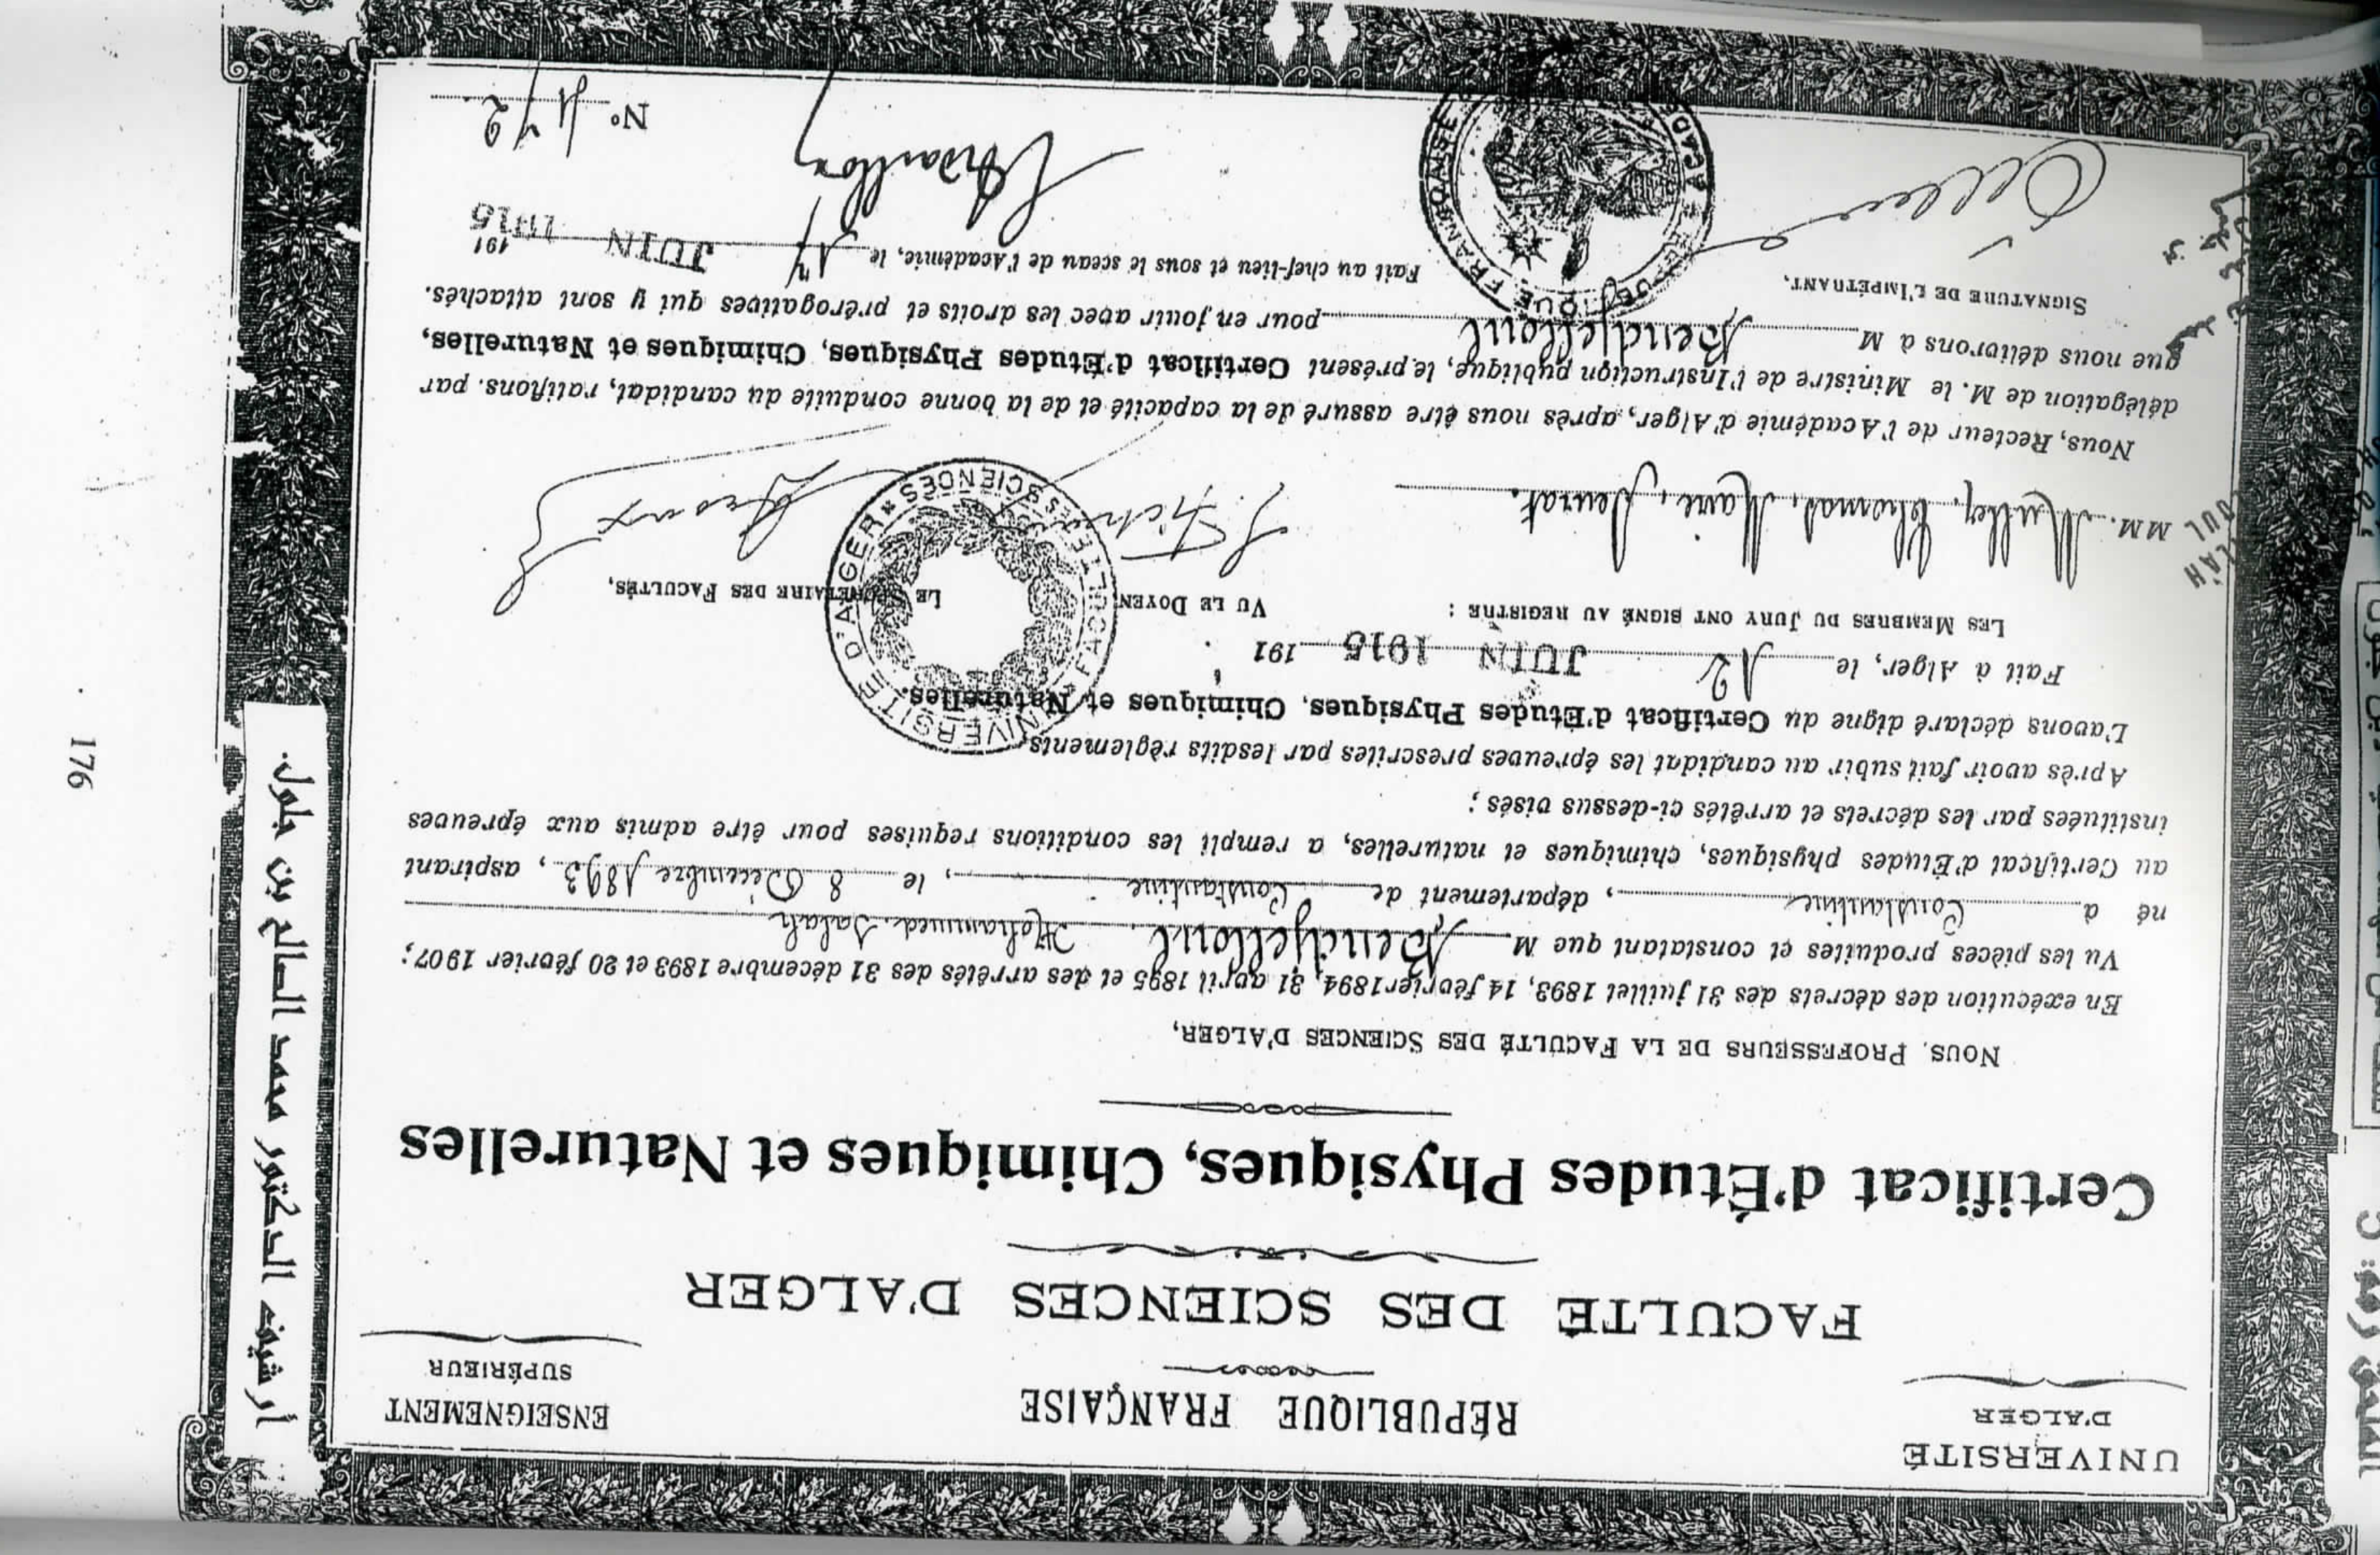 UNIVERSITÉ
D'ALGER
RÉPUBLIQUE FRANÇAISE
ENSEIGNEMENT
SUPÉRIEUR
FACULTÉ DES SCIENCES D'ALGER
Certificat d'Études Physiques, Chimiques et Naturelles
NOUS, PROFESSEURS DE LA FACULTÉ DES SCIENCES D'ALGER,
En exécution des décrets des 31 juillet 1893, 14 février 1894, 31 avril 1895 et des arrêtés des 31 décembre 1893 et 20 février 1907;
Vu les pièces produites et constatant que M Bendjelloul, Mohammed Salah
né à Constantine, département de Constantine, le 8 Décembre 1893, aspirant
au Certificat d'Études physiques, chimiques et naturelles, a rempli les conditions requises pour être admis aux épreuves
instituées par les décrets et arrêtés ci-dessus visés;
Après avoir fait subir au candidat les épreuves prescrites par lesdits règlements,
L'avons déclaré digne du Certificat d'Études Physiques, Chimiques et Naturelles.
Fait à Alger, le 12 JUIN 1915 191
LES MEMBRES DU JURY ONT SIGNÉ AU REGISTRE :
VU LE DOYEN
LE SECRÉTAIRE DES FACULTÉS,
MM. Muller, Thomas, Maire, Seurat.
UNIVERSITÉ D'ALGER * FACULTÉ DES SCIENCES
Nous, Recteur de l'Académie d'Alger, après nous être assuré de la capacité et de la bonne conduite du candidat, ratifions, par
délégation de M. le Ministre de l'Instruction publique, le présent Certificat d'Études Physiques, Chimiques et Naturelles,
que nous délivrons à M Bendjelloul pour en jouir avec les droits et prérogatives qui y sont attachés.
SIGNATURE DE L'IMPÉTRANT,
Fait au chef-lieu et sous le sceau de l'Académie, le 17 JUIN 1915 191
N° 172
أرشيف الدكتور محمد الصالح بن جلول.
176